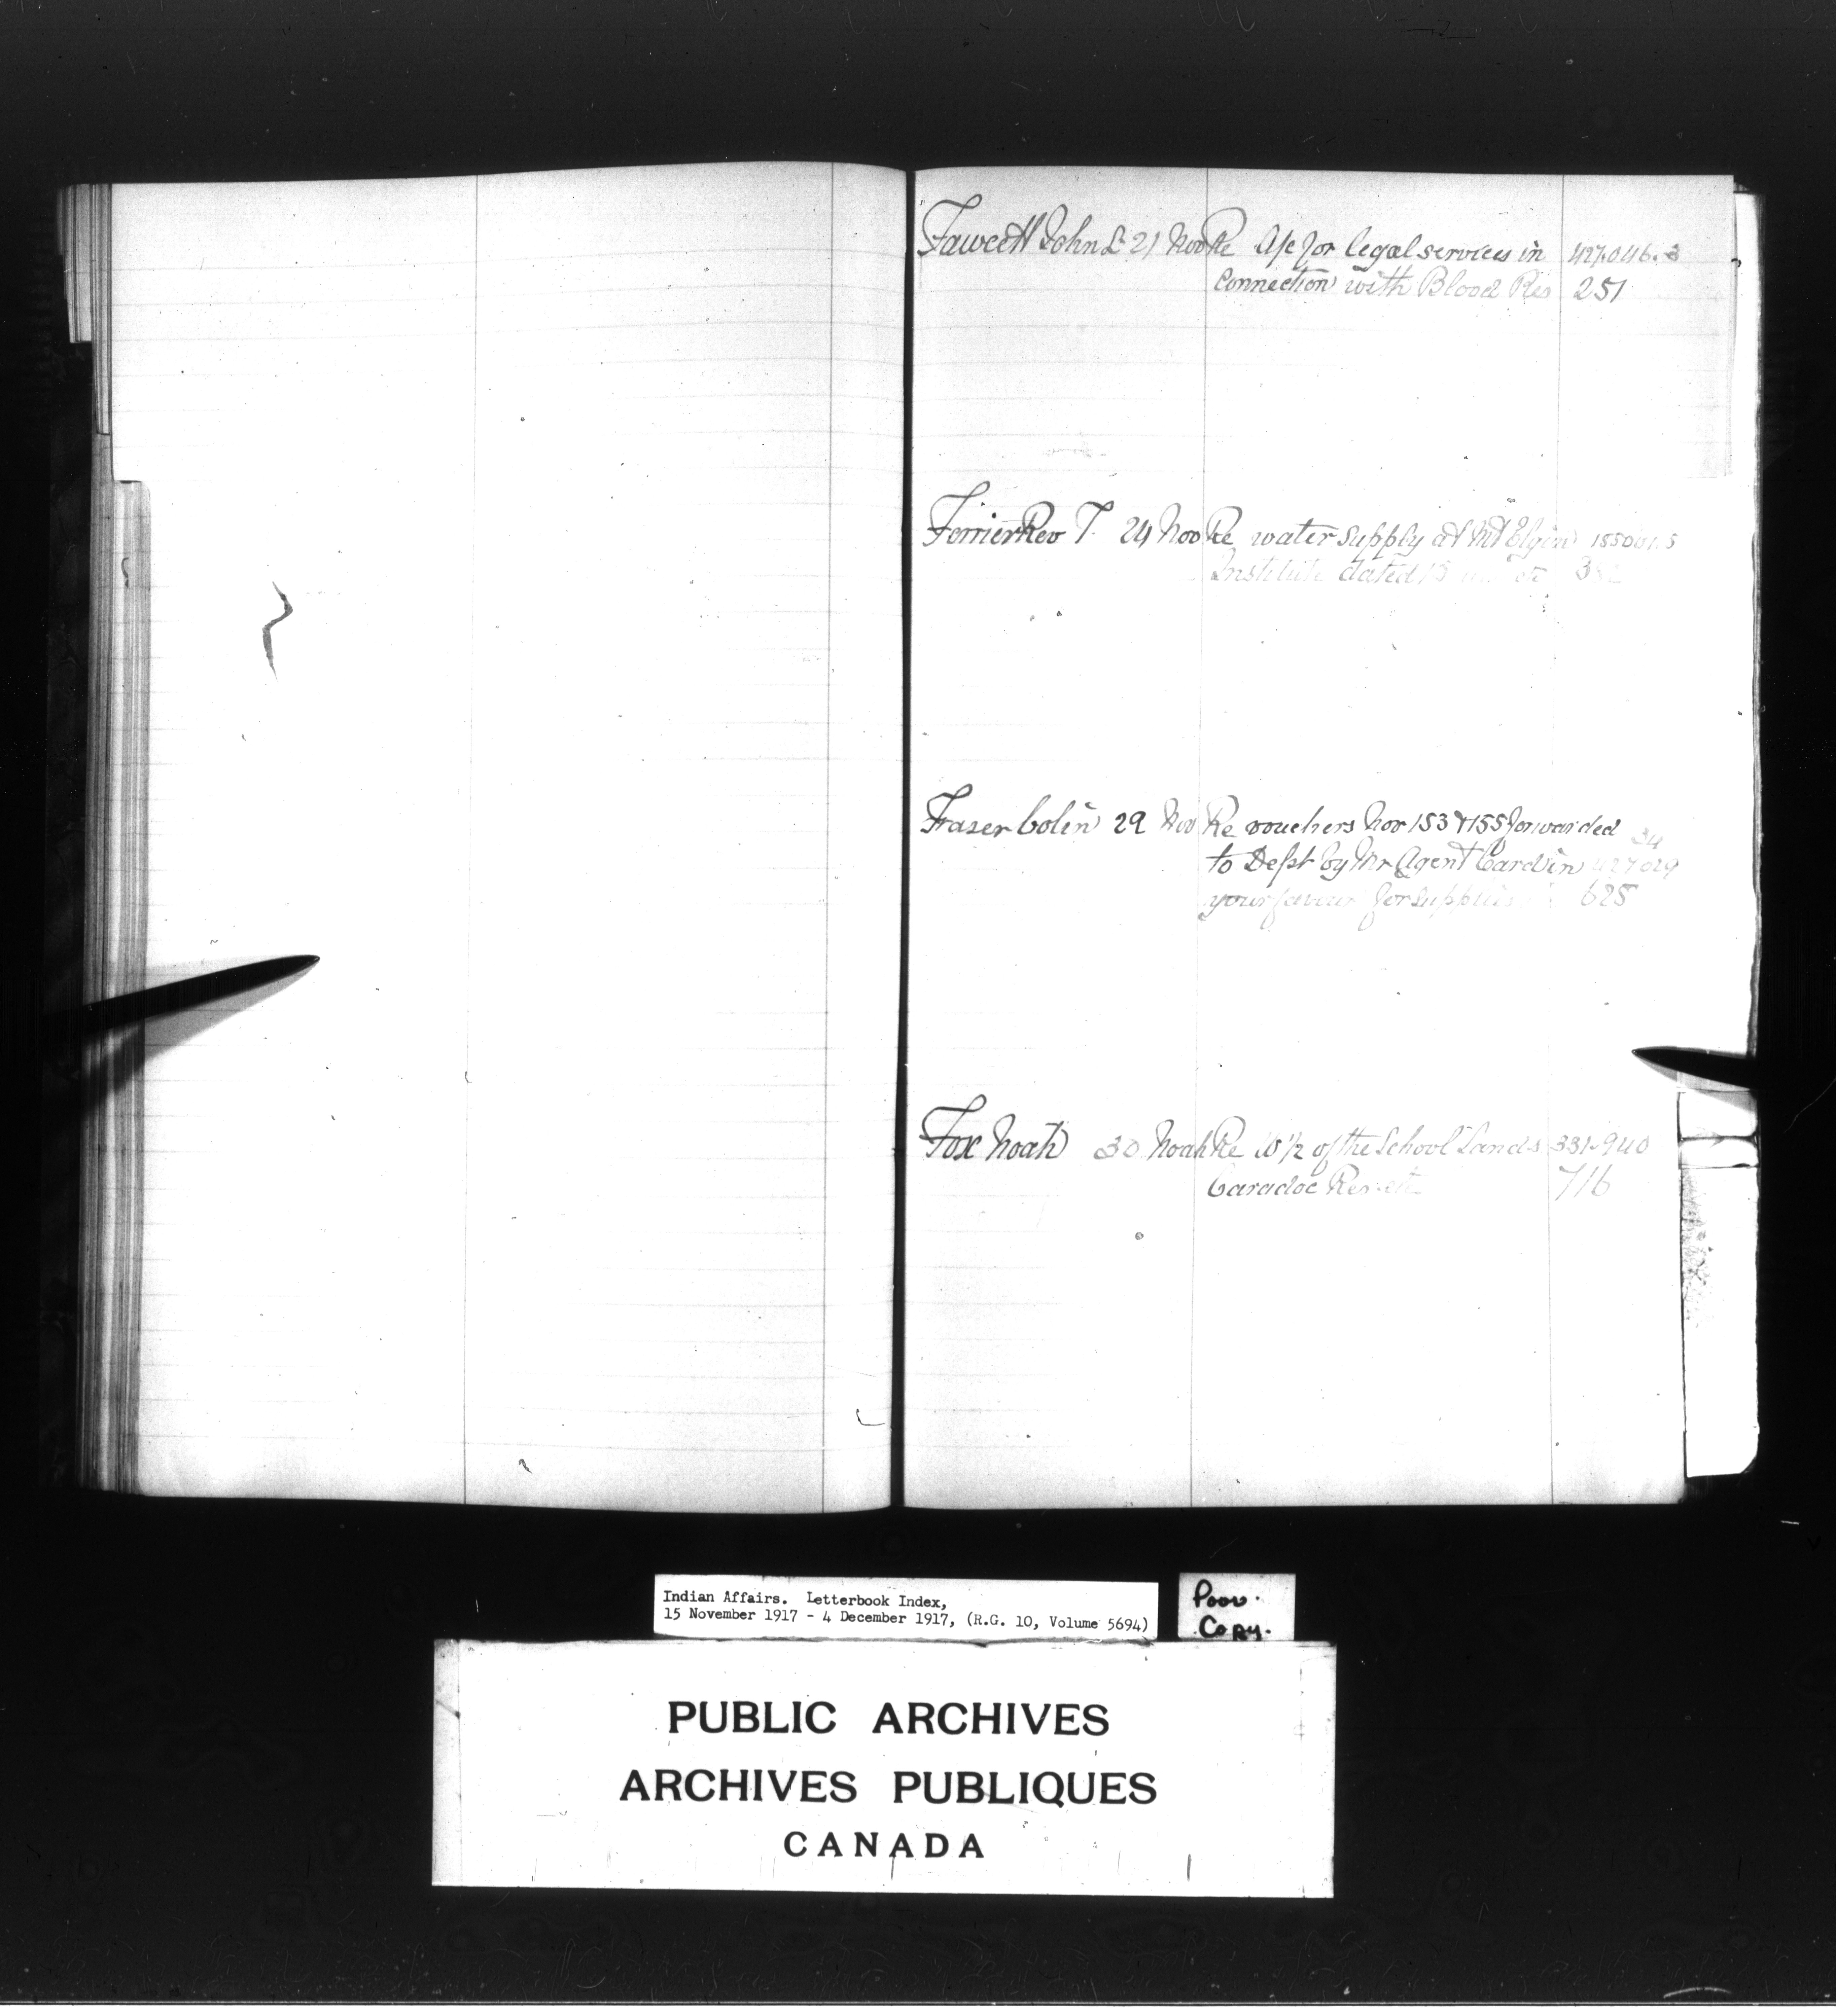 Fawcett John L 21 Nov Re A/c for legal services in 427.046.3
connection with Blood Res 251
Ferrier Rev T. 24 Nov Re water supply at Mt Elgin
Institute dated 15
Fraser Colin 29 Nov Re vouchers Nos 153 & 155 forwarded 34
to Dept by Mr Agent Cardin 427029
your favour for supplies 625
Fox Noah 30 Noah Re W 1/2 of the School Lands 331.940
Caradoc Res 716
Indian Affairs. Letterbook Index,
15 November 1917 - 4 December 1917, (R.G. 10, Volume 5694)
Poor.
Copy.
PUBLIC ARCHIVES
ARCHIVES PUBLIQUES
CANADA